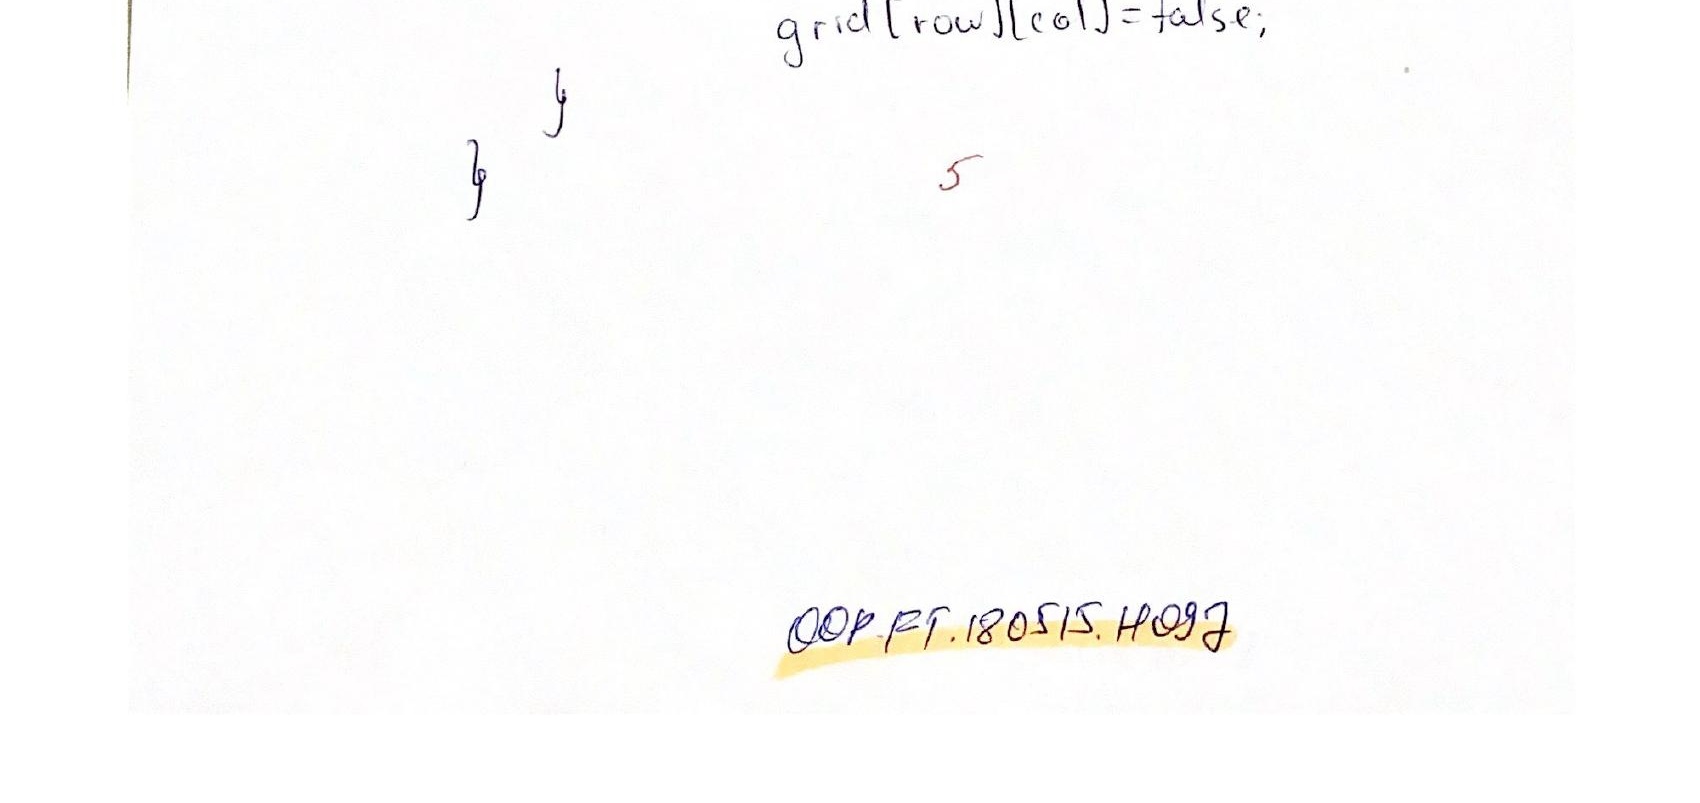 grid[row][col]=false;
}
}
5
OOP.FT.180515.H097